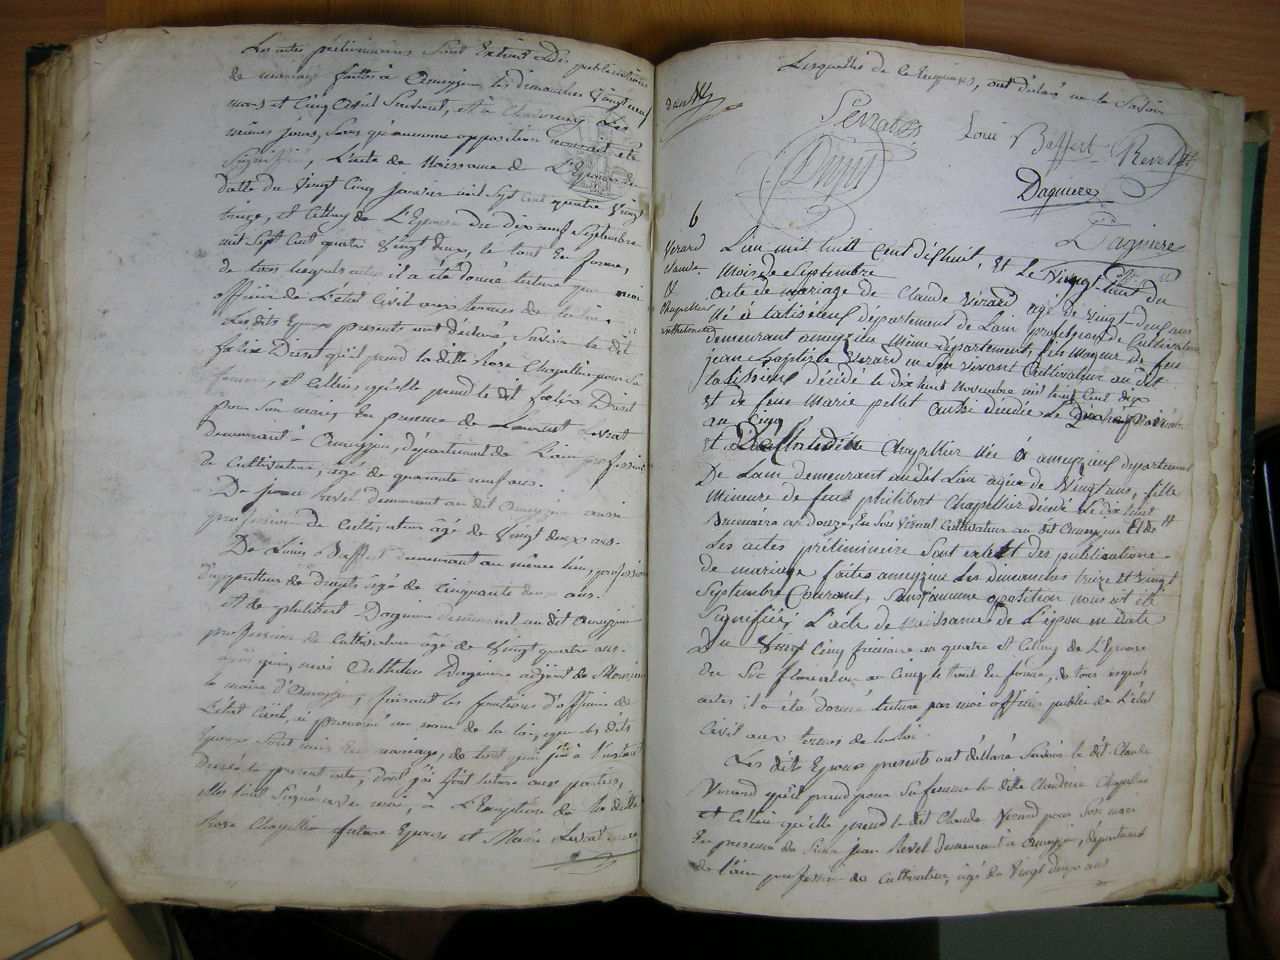 Les actes préliminaires sont Extrait des publications
de mariage faittes à Ameyzieu les dimanches vingt neuf
mars et Cinq Avril Suivant, et à
mêmes jours, Sans qu'aucunne opposition
L'acte de Naissance de L'Epoux de
datte du Vingt Cinq janvier mil Sept Cent quatre Vingt
treize, et Celluy de L'Epouse du dix neuf Septembre
mil Sept Cent quatre Vingt deux, le tout En forme,
de tous lesquels actes il a été donné lecture par moi
officier de L'état Civil aux termes de la loi.
Les dits Epoux presents ont déclaré, Savoir le dit
felix Divret qu'il prend la ditte Rose Chapellier pour Sa
femme, et Cellui, qu'elle prend le dit felix Divret
pour Son mari, En presence de Laurent Levrat
demeurant à Ameyzieu, département de L'ain profession
de Cultivateur, âgé de quarante neuf ans.
De jean Revel demeurant au dit Ameyzieu aussi
profession de Cultivateur âgé de Vingt deux ans.
De Louis Baffert demeurant au même lieu, profession
âgé de Cinquante deux ans.
Et de philibert Daguiere demeurant au dit Ameyzieu
profession de Cultivateur âgé de Vingt quatre ans.
après quoi, moi Daguiere adjoint de Monsieur
le maire d'Ameyzieu, faisant les fonctions d'officier de
L'état Civil, ai prononcé au nom de la loi, que les dits
Epoux Sont unis En mariage, de tout quoi j'ai à l'instant
Dressé le présent acte, dont j'ai fait lecture aux parties,
Signé avec moi, à L'Exception de la ditte
Rose Chapellier future Epouse et
Lesquelles de ce requises, ont déclaré ne le Savoir
Levrat
Loui Baffert
Revel
Divret
Daguiere
Daguiere
6
Verard
Claude
Et
Chapellier
L'an mil huitt Cent dishuit, Et Le Vingt
du
Mois de Septembre
Acte de mariage de Claude Vérard agé de vingt-deus ans
Né à talissieus département de Lain profession de Cultivateur
demeurant ameyzieu même département, fils Majeur de feu
jean Baptiste Verard en Son vivant Cultivateur au dit
talissieus décédé le dix huit Novembre mil huit Cent dix
et de feue Marie pellet aussi décédée Le
an Cinq
Et Claudine Chapellier Née à ameyzieus departement
De Lain demeurant au dit Lieu agée de vingt ans, fille
Mineure de feus philibert Chapellier décédé Le dix huit
an douze, En Son Vivant Cultivateur au dit Ameyzieu Et de
Les actes préliminaire Sont extrait des publications
de mariage faites ameyzieu Les dimanches treize et vingt
Septembre Courant, Sans aucune oposition nous ait été
Signifiée, L'acte de naissance de L'epoux en date
Du Vingt Cinq frimaire an quatre Et Celluy de L'Epouse
du Six floreal an Cinq le tout En forme, de tous lesquels
actes il a été donné lecture par moi officier public de L'état
Civil aux termes de la loi.
Les dit Epoux presents ont déclaré Savoir le dit Claude
Verard qu'il prend pour Sa femme la ditte Claudine Chapellier
et Cellui qu'elle prend le dit Claude Verard pour Son mari
En presence du Sieur jean Revel demeurant à Ameyzieu, département
de l'ain profession de Cultivateur, âgé de Vingt deux ans